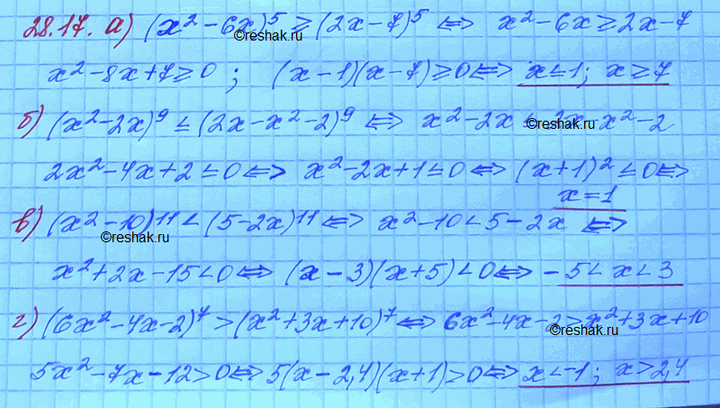 28.17. а) (x²-6x)⁵ ≥ (2x-7)⁵ ⇔ x²-6x ≥ 2x-7
reshak.ru
x²-8x+7 ≥ 0 ; (x-1)(x-7) ≥ 0 ⇔ x ≤ 1; x ≥ 7
б) (x²-2x)⁹ ≤ (2x-x²-2)⁹ ⇔ x²-2x ≤ 2x-x²-2
©reshak.ru
2x²-4x+2 ≤ 0 ⇔ x²-2x+1 ≤ 0 ⇔ (x+1)² ≤ 0 ⇔
x=1
в) (x²-10)¹¹ < (5-2x)¹¹ ⇔ x²-10 < 5-2x ⇔
©reshak.ru
x²+2x-15 < 0 ⇔ (x-3)(x+5) < 0 ⇔ -5 < x < 3
г) (6x²-4x-2)⁷ > (x²+3x+10)⁷ ⇔ 6x²-4x-2 > x²+3x+10
©reshak.ru
5x²-7x-12 > 0 ⇔ 5(x-2,4)(x+1) > 0 ⇔ x < -1; x > 2,4